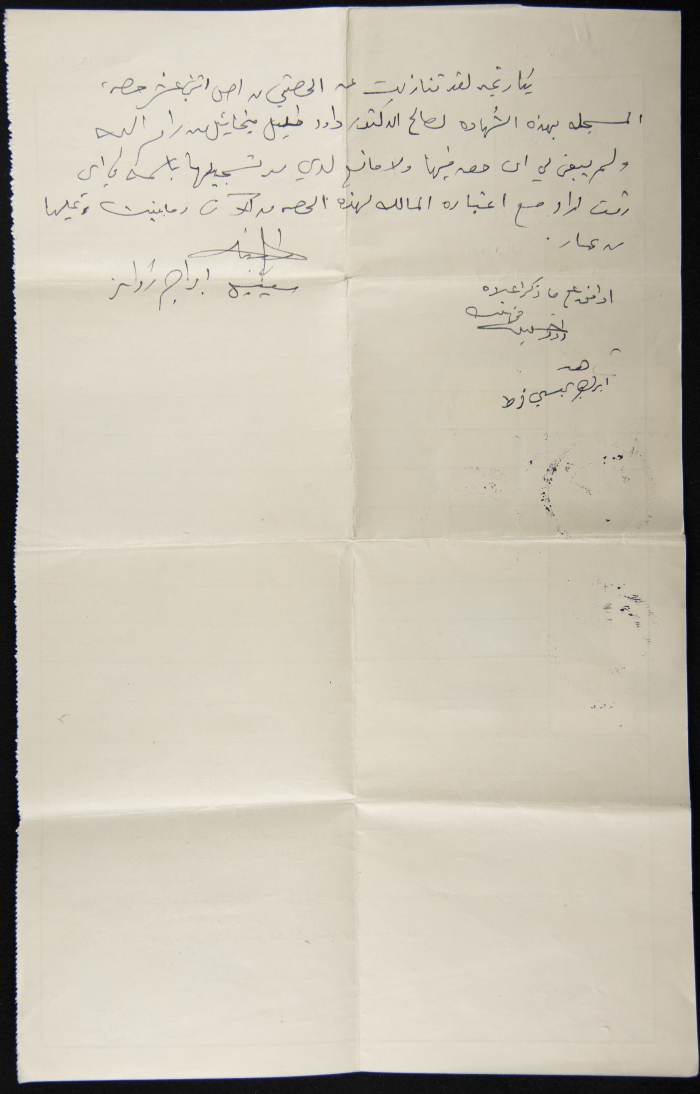 بتاريخه لقد تنازلت عن الحصتي من اصل اثني عشر حصه
المسجله بهذه الشهاده لصالح الدكتور داود خليل ميخائيل من رام الله
ولم يبقى لي اي حصه فيها ولا مانع لدي من تسجيلها باسمه في اي
وقت اراد مع اعتباره المالك لهذه الحصه من الآن وما بنيت عليها
من عمار .
ابراهيم
اوافق على ما ذكر اعلاه
شاهد
ابراهيم عيسى